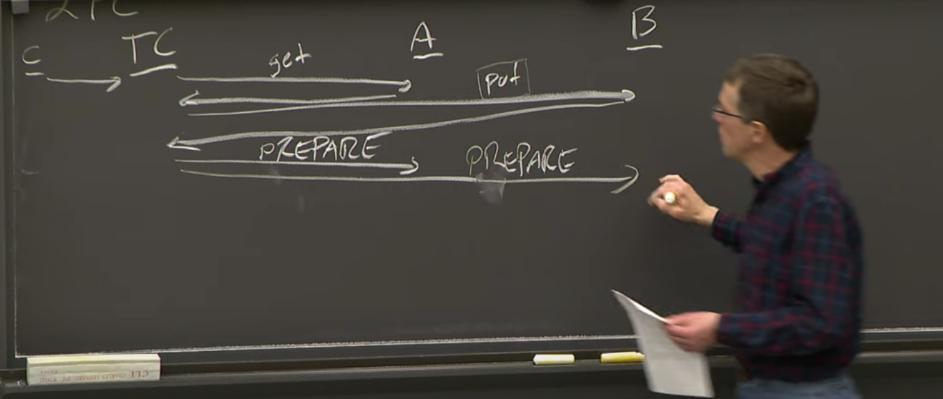 2PC
C TC A B
get put
PREPARE PREPARE